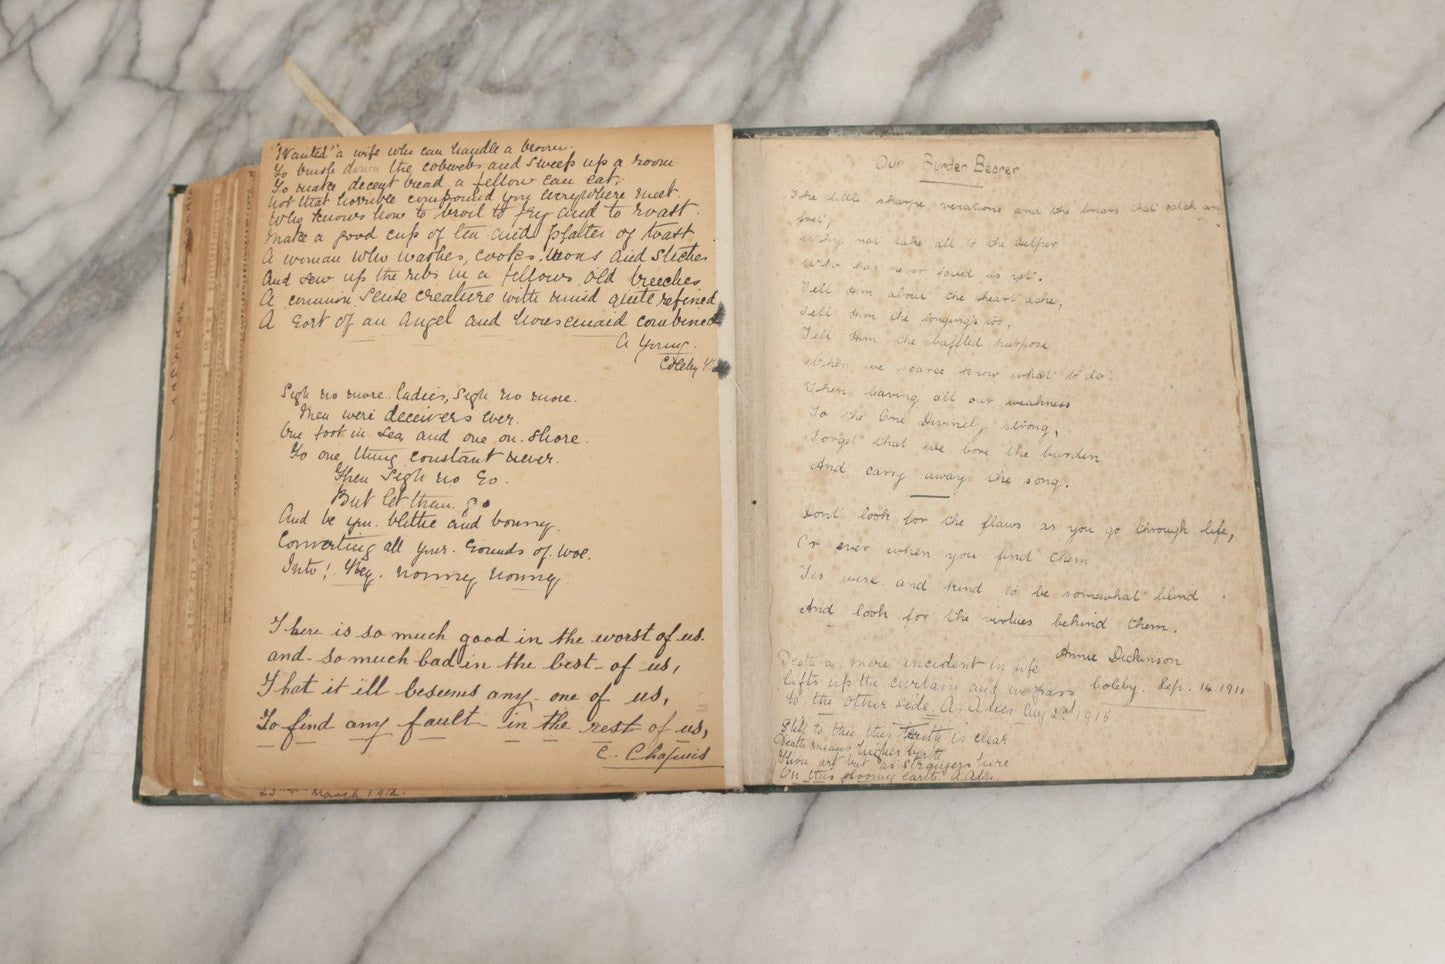 "Wanted" a wife who can handle a broom.
To brush down the cobwebs and sweep up a room.
To make decent bread a fellow can eat.
Not that horrible compound you everywhere meet.
Who knows how to broil to fry and to roast.
Make a good cup of tea and platter of toast
A woman who washes, cooks, irons and stiches
And sew up the ribs in a fellows old breeches.
A common sense creature with mind quite refined
A sort of an angel and housemaid combined
A Young.
Coleby
Sigh no more. ladies, sigh no more.
Men were deceivers ever.
One foot in sea, and one on shore.
To one thing constant never.
Then sigh no so.
But let them. go
And be you. blithe and bonny.
Converting all your. sounds of. woe.
Into! Hey. nonny nonny.
There is so much good in the worst of us.
and so much bad in the best of us,
That it ill beseems any one of us,
To find any fault in the rest of us,
C. Chafuis
March 1912.
Our Burden Bearer
The little sharpe vexacious and the briars that catch an
fret,
Why not take all to the helper
Who has never failed us yet.
Tell Him about the heart ache,
Tell Him the longings too,
Tell Him the baffled purpose
When we scarce know what to do.
Then leaving all our weakness
To the One Divinely strong,
Forget that we bore the burden
And carry away the song.
Dont look for the flaws as you go through life,
Or ever when you find them
Tis wise and kind to be somewhat blind
And look for the virtues behind them.
Annie Dickinson
Coleby. Sep. 14. 1911
Death a mere incident in life
lifts up the curtain and we pass
to the other side. A. Adies Aug 2nd 1916
to thee this truth is clear
Death means higher birth
Thou art but as strangers here
On this gloomy earth. A. Adies